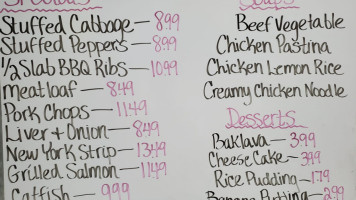 Specials
Stuffed Cabbage — 8.99
Stuffed Peppers — 8.99
1/2 Slab BBQ Ribs — 10.99
meatloaf — 8.49
Pork Chops — 11.49
Liver + Onion — 8.49
New York Strip — 13.49
Grilled Salmon — 11.49
Catfish — 9.99
Soups
Beef Vegetable
Chicken Pastina
Chicken Lemon Rice
Creamy Chicken Noodle
Desserts
Baklava — 3.99
Cheese Cake — 3.99
Rice Pudding — 1.79
Banana Pudding — 2.99